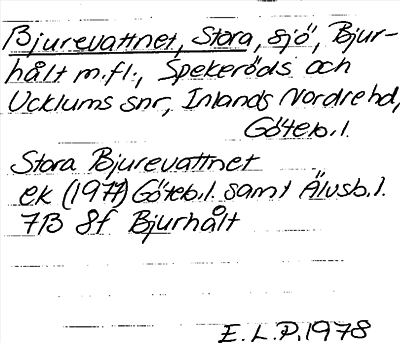 Bjurevattnet, Stora, sjö, Bjur-
hålt m.fl., Spekeröds och
Ucklums snr, Inlands Nordre hd,
Göteb.l.
Stora Bjurevattnet
ek (1977) Göteb.l. samt Älvsb.l.
7B 8f Bjurhålt
E.L.P. 1978